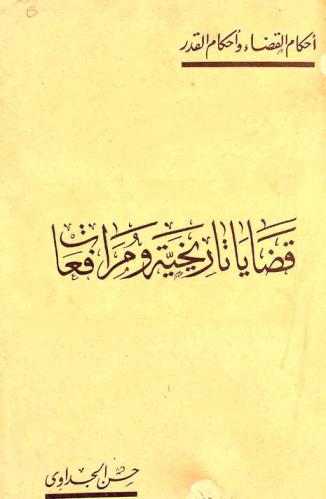 أحكام القضاء وأحكام القدر
قضايا تاريخية ومرافعات
حسن الجداوى